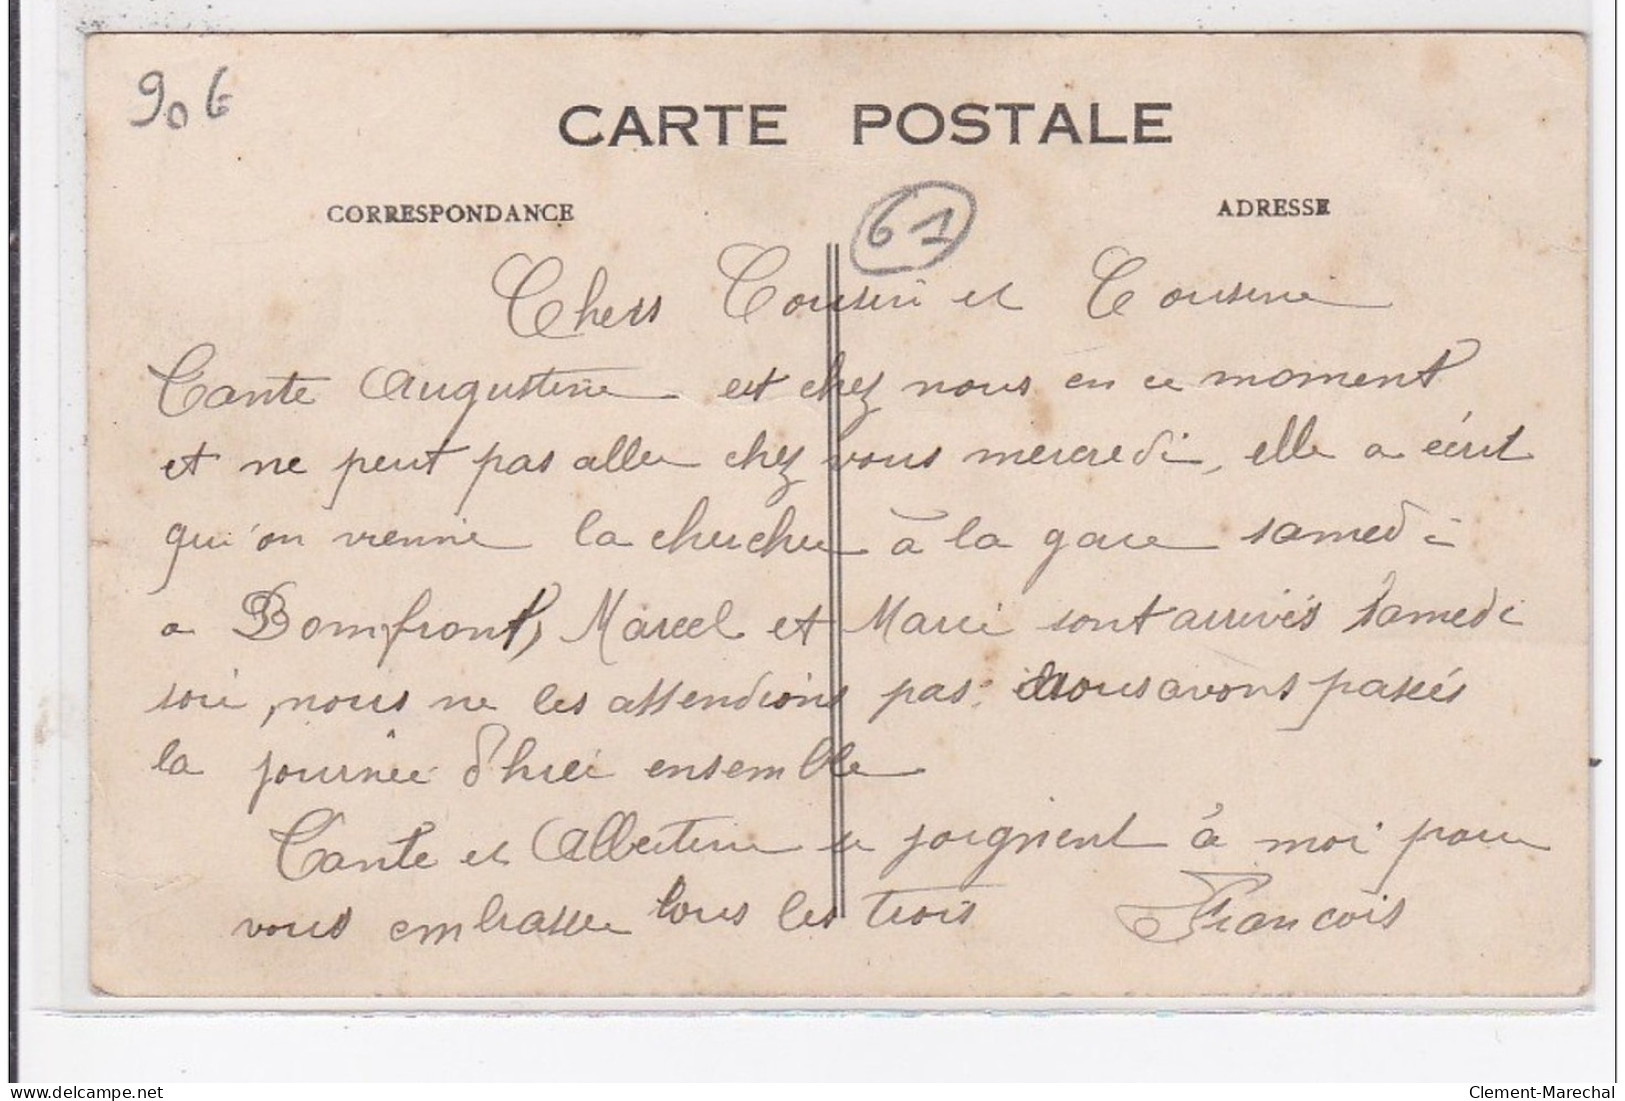 90 €
CARTE POSTALE
CORRESPONDANCE
ADRESSE
61
Chers Cousin et Cousine
Tante Augustine est chez nous en ce moment
et ne peut pas aller chez vous mercredi, elle a écrit
qu'on vienne la chercher à la gare samedi
a Domfront, Marcel et Marie sont arrivés samedi
soir, nous ne les attendions pas nous avons passés
la journée d'hier ensemble
Tante et Albertine se joignent à moi pour
vous embrasser tous les trois François
delcampe.net
Clement-Marechal